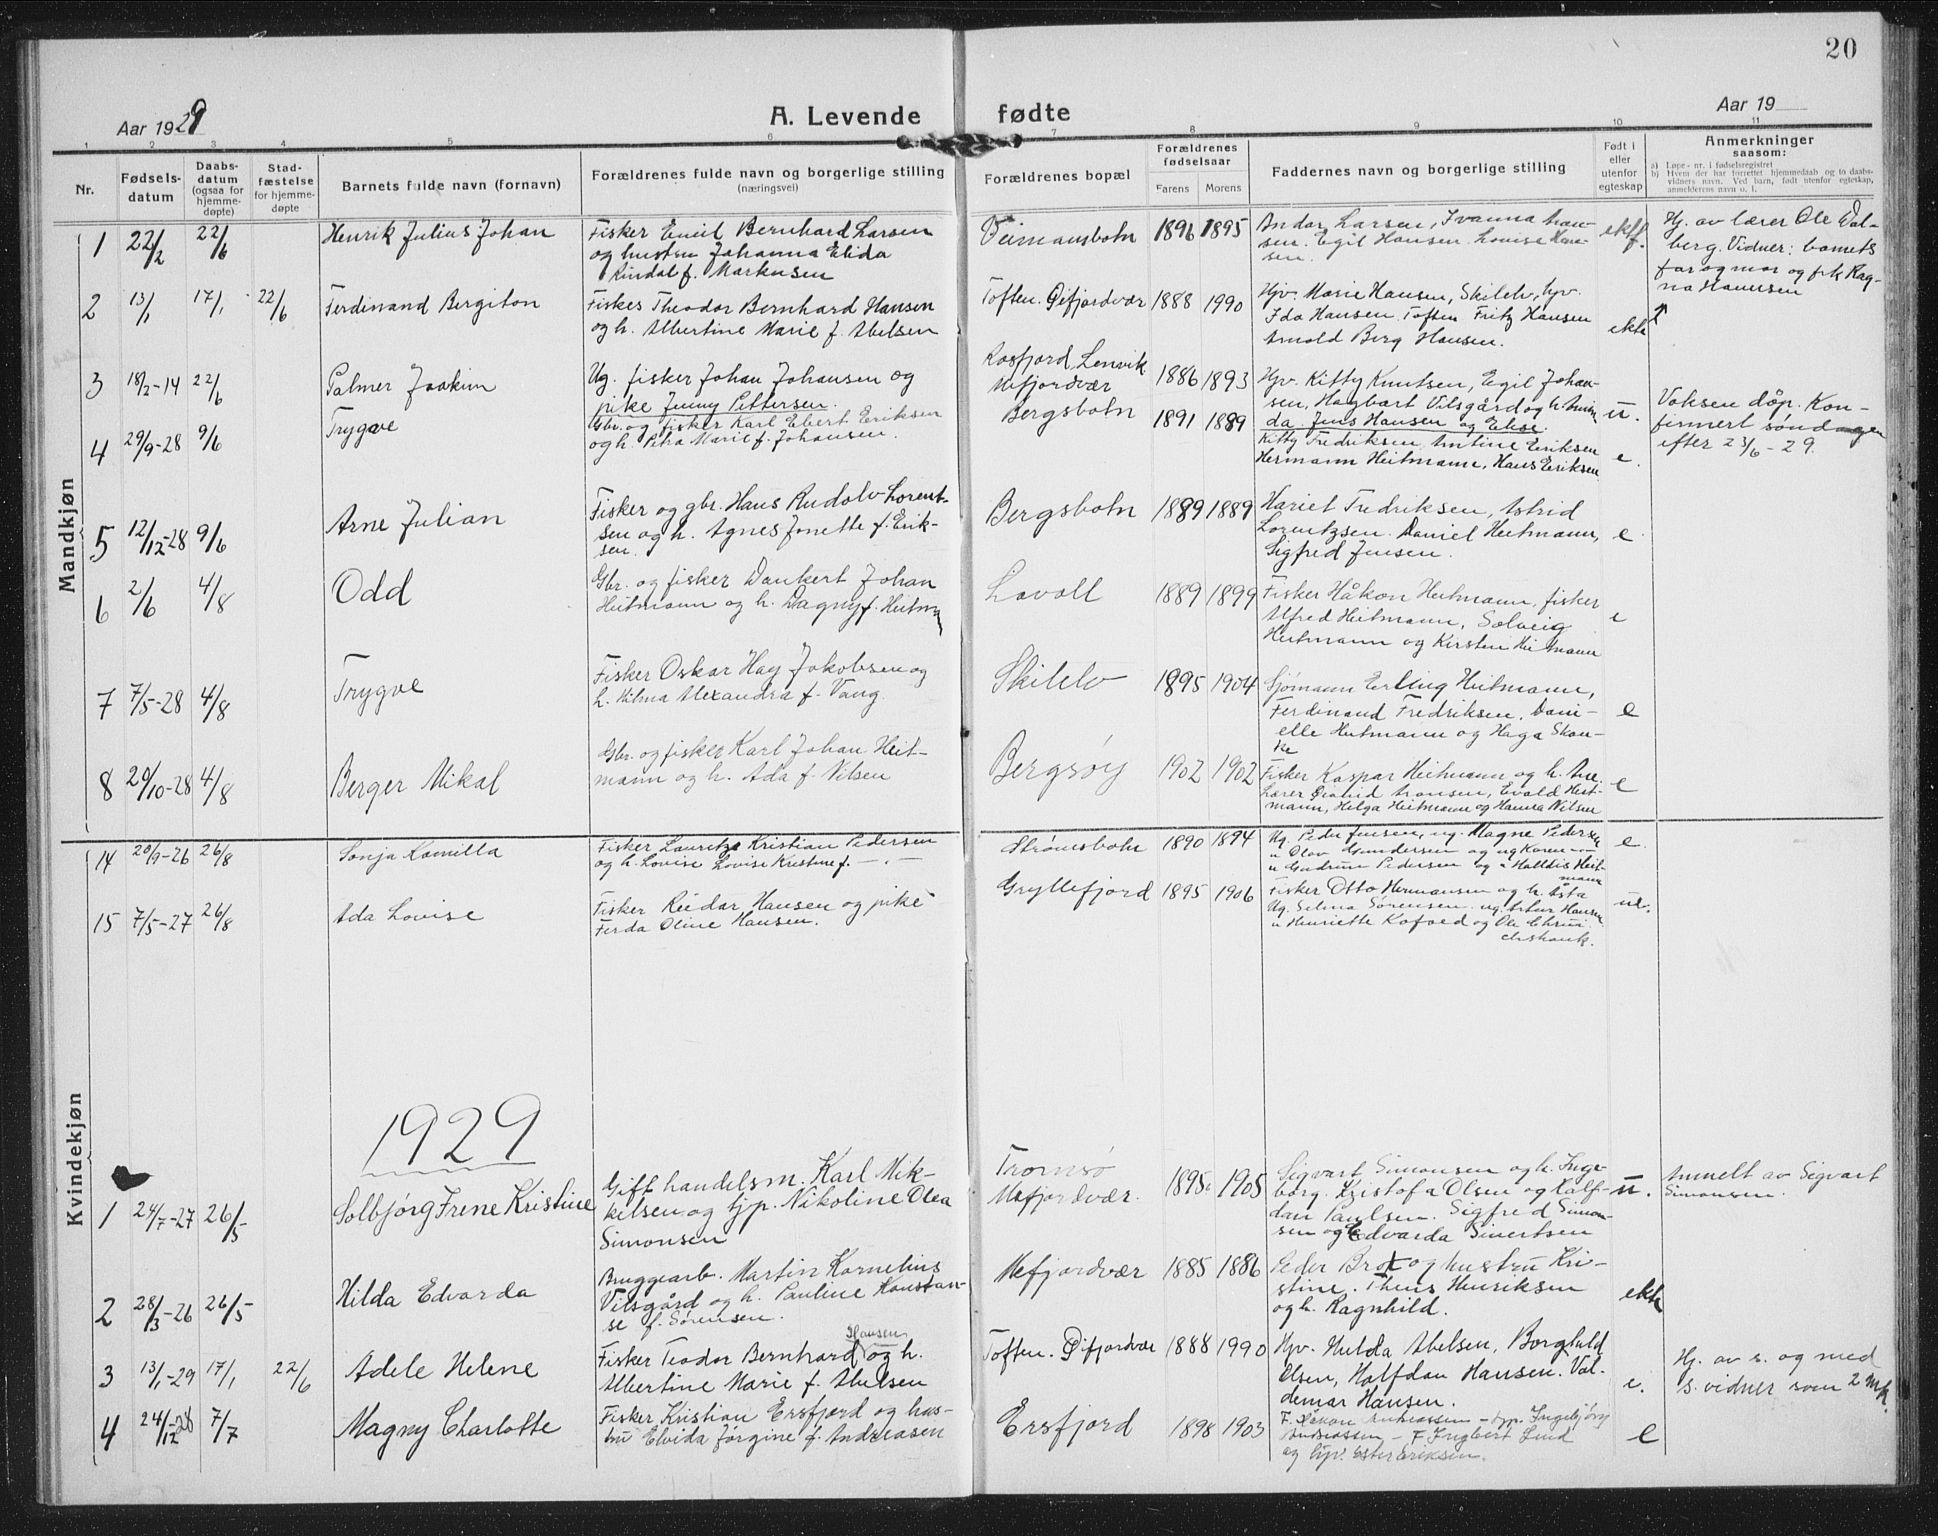 20
Aar 1929
A. Levende fødte
Aar 19
1 2 3 4 5 6 7 8 9 10 11
Nr.
Fødsels-
datum
Daabs-
datum
(ogsaa for
hjemme-
døpte)
Stad-
fæstelse
for hjemme-
døpte
Barnets fulde navn (fornavn)
Forældrenes fulde navn og borgerlige stilling
(næringsvei)
Forældrenes bopæl
Forældrenes
fødselsaar
Farens Morens
Faddernes navn og borgerlige stilling
Født i
eller
utenfor
egteskap
Anmerkninger
saasom:
a) Løpe-nr. i fødselsregistret
b) Hvem der har forrettet hjemmedaab og to daabs-
vidners navn. Ved barn, født utenfor egteskap,
anmelderens navn o. l.
Mandkjøn
1 22/2 22/6 Henrik Julius Johan
Fisker Emil Bernhard Larsen
og hustru Johanna Elida
Rindal f. Markusen
1896 1895
Andor Larsen, Ivanna Han-
sen. Egil Hansen. Lovise Han-
sen.
ektf.
Hj. av lærer Ole Dal-
berg. Vidner: barnets
far og mor og frk Rag-
na Hansen
2 13/1 17/1 22/6 Ferdinand Bergiton
Fisker Theodor Bernhard Hansen
og h. Albertine Marie f. Abelsen
Toften. Øifjordvær 1888 1990
Hjv. Marie Hansen, Skilelv, hjv.
Ida Hansen. Toften Fritz Hansen
Arnold Berg Hansen.
ekte
3 18/2-14 22/6 Palmer Joakim
Ug. fisker Johan Johansen og
pike Jenny Pettersen.
Rosfjord, Lenvik
Mefjordvær
1886 1893
Hjv. Kitty Knutsen, Egil Johan-
sen, Hagbart Vilsgård og h. Amin
da. Jens Hansen og Elise.
u.
Voksen døp. Kon-
firmert søndagen
efter 23/6-29.
4 29/9-28 9/6 Trygve
Gbr. og fisker Karl Ebert Eriksen
og h. Petra Marie f. Johansen.
Bergsbotn 1891 1889
Kitty Fredriksen, Antine Eriksen
Hermann Heitmann, Hans Eriksen
e.
5 12/12-28 9/6 Arne Julian
Fisker og gbr. Hans Rudolv Lorent-
sen og h. Agnes Jonette f. Erik-
sen.
Bergsbotn 1889 1889
Hariet Fredriksen, Astrid
Lorentzsen. Daniel Heitmann,
Sigfred Jensen.
e
6 2/6 4/8 Odd
Gbr. og fisker Dankert Johan
Heitmann og h. Dagny f. Heitm
Lavoll 1889 1899
Fisker Håkon Heitmann, fisker
Alfred Heitmann, Solveig
Heitmann og Kirsten Heitmann
e
7 7/5-28 4/8 Trygve
Fisker Oskar Hag Jakobsen og
h. Hilma Alexandra f. Vang.
Skilelv 1895 1904
Sjømann Erling Heitmann,
Ferdinand Fredriksen, Dani-
elle Heitmann og Haga Skan-
ke
e
8 29/10-28 4/8 Berger Mikal
Gbr. og fisker Karl Johan Heit-
mann og h. Ada f. Nilsen
Bergsøy 1902 1902
Fisker Kaspar Heitmann og h. Ane.
Lærer Øivind Aronsen, Evald Heit-
mann, Helga Heitmann og Hanna Nilsen
e
Kvindekjøn
14 20/9-26 26/8 Sonja Kamilla
Fisker Lauritz Kristian Pedersen
og h. Lovise Lovise Kristine f. — „ —
Strømsbotn 1890 1894
Ug. Peder Jensen, ug. Magne Pedersen
u Olav Gundersen og ug Karen —
u Gudrun Pedersen og u Halldis Heit-
mann
e.
15 7/5-27 26/8 Ada Lovise
Fisker Reidar Hansen og pike
Ferda Oline Hansen.
Gryllefjord 1895 1906
Fisker Otto Hermansen og h. Asta
Ug. Selma Sørensen. ug. Artur Hansen
u Henriette Kofoed og Ole
ue.
1929
1 24/7-27 26/5 Solbjørg Irene Kristine
Gift handelsm. Karl Mik-
kelsen og tjp. Nikoline Olea
Simonsen
Tromsø
Mefjordvær.
1895 1905
Sigvart Simonsen og h. Inge-
borg. Kristofa Olsen og Half-
dan Paulsen. Sigfred Simon-
sen og Edvarda Sivertsen
u.
Anmelt av Sigvart
Simonsen.
2 28/3-26 26/5 Hilda Edvarda
Bruggearb. Martin Kornelius
Vilsgård og h. Pauline Konstan-
se f. Sørensen.
Mefjordvær 1885 1886
Peder Brox og hustru Kri-
stine. Theus Henriksen
og h. Ragnhild.
ekte
3 13/1-29 17/1 22/6 Adele Helene
Fisker Teodor Bernhard Hansen og h.
Albertine Marie f. Abelsen
Toften. Øifjordvær 1888 1990
Hjv. Hulda Abelsen, Borghild
Olsen, Halfdan Hansen. Val-
demar Hansen.
e.
Hj. av s. og med
s. vidner som 2 mk.
4 24/12-28 7/7 Magny Charlotte
Fisker Kristian Ersfjord og hus-
tru Elvida Jørgine f. Andreasen
Ersfjord 1898 1903
F. Håkon Andreassen – tjp. Ingebjörg
Andreassen – F Ingbert Lund
og hjv. Ester Eriksen.
e